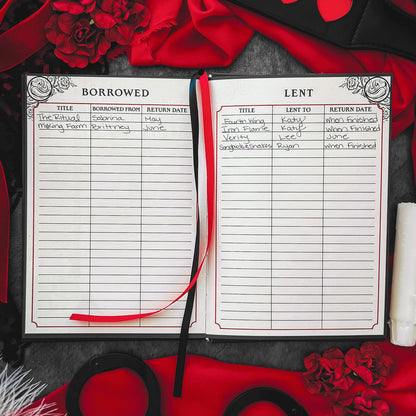 BORROWED
TITLE BORROWED FROM RETURN DATE
The Ritual Sabrina May
Making Farm Brittney June
LENT
TITLE LENT TO RETURN DATE
Fourth Wing Katy When Finished
Iron Flame Katy When Finished
Verity Lee June
Ryan When Finished